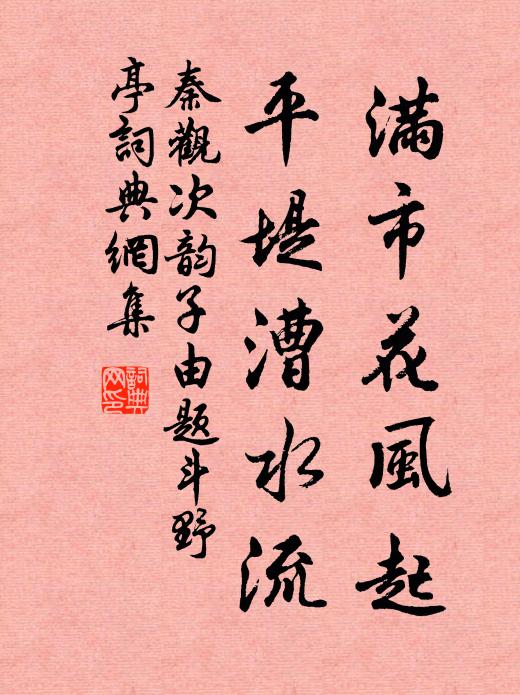 滿市花風起
平堤漕水流
秦觀次韵子由題斗野
亭詞典網集
詞典
网印